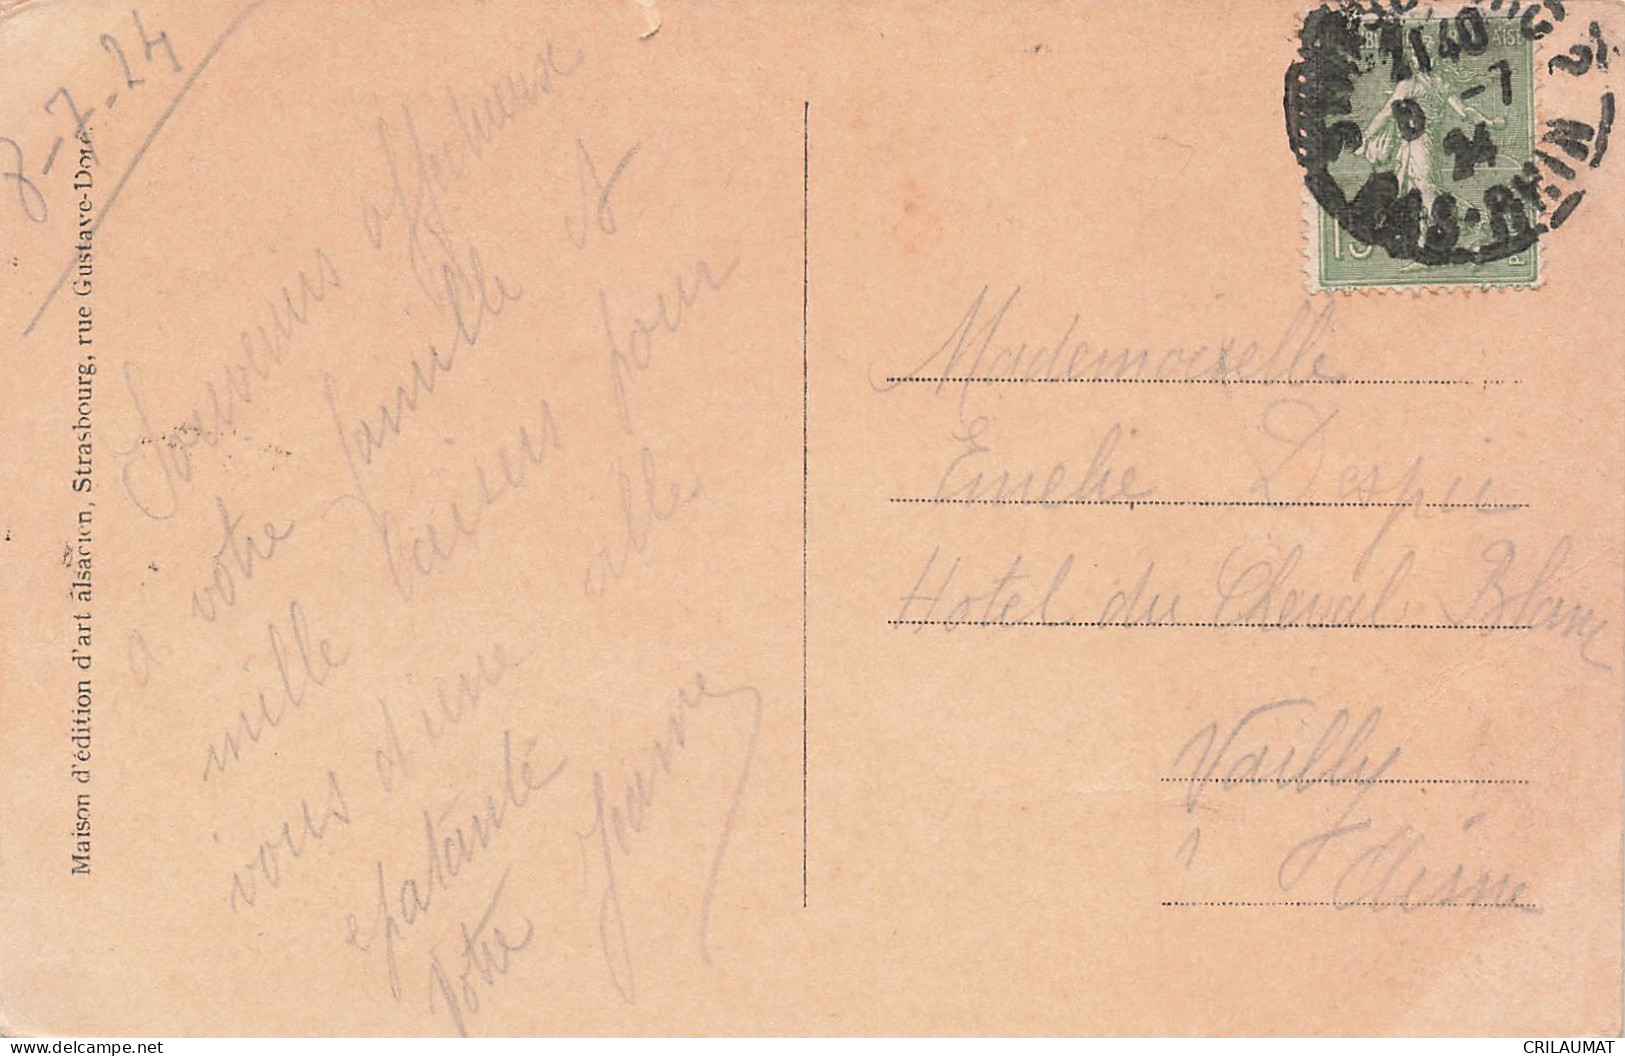 8-7-24
Souvenirs affectueux
a votre famille et
mille baisers pour
vous d'une ville
epatante
Votre
Maison d'édition d'art alsacien, Strasbourg, rue Gustave-Doré
STRASBOURG
21 40
8 -7
24
BAS-RHIN
15
Mademoiselle
Emelie Despie
Hotel du Cheval Blanc
Vailly
Aisne
CRILAUMAT